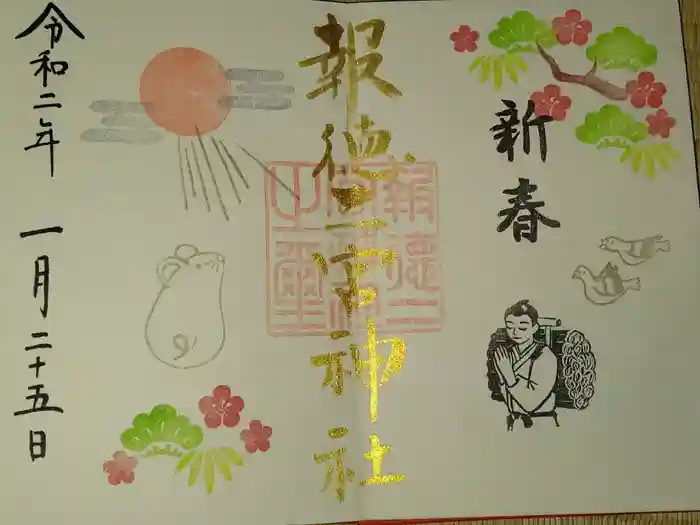 新春
報徳二宮神社
令和二年 一月二十五日